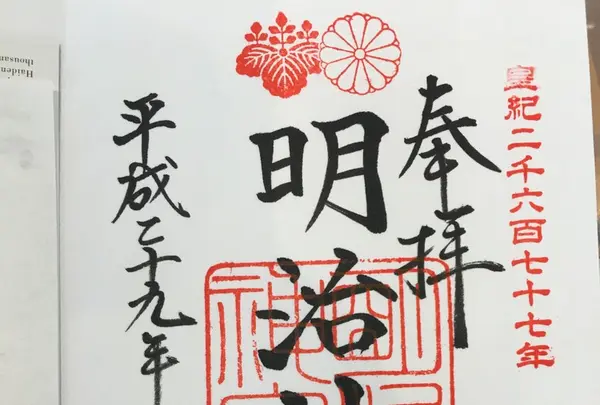 皇紀二千六百七十七年
奉拝
明治
平成二十九年
Haiden
thousan